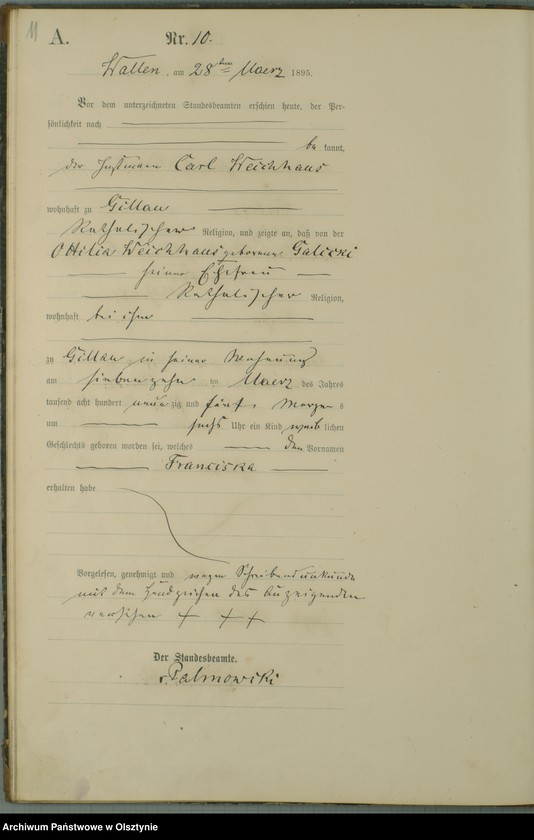 11
A.
Nr. 10.
Wallen, am 28ten Maerz 1895.
Vor dem unterzeichneten Standesbeamten erschien heute, der Per-
sönlichkeit nach
be kannt,
der Carl Weichhaus
wohnhaft zu Gillau
Katholischer Religion, und zeigte an, daß von der
Ottilia Weichhaus geborenen Galicki
seiner Ehefrau
Katholischer Religion,
wohnhaft bei ihm
zu Gillau in seiner Wohnung
am siebenzehn ten Maerz des Jahres
tausend acht hundert neun zig und fünf, Morgen s
um sechs Uhr ein Kind weib lichen
Geschlechts geboren worden sei, welches den Vornamen
Franciska
erhalten habe
Vorgelesen, genehmigt und wegen Schreibensunkunde
mit dem Handzeichen des Anzeigenden
versehen + + +
Der Standesbeamte.
v. Palmowski
Archiwum Państwowe w Olsztynie